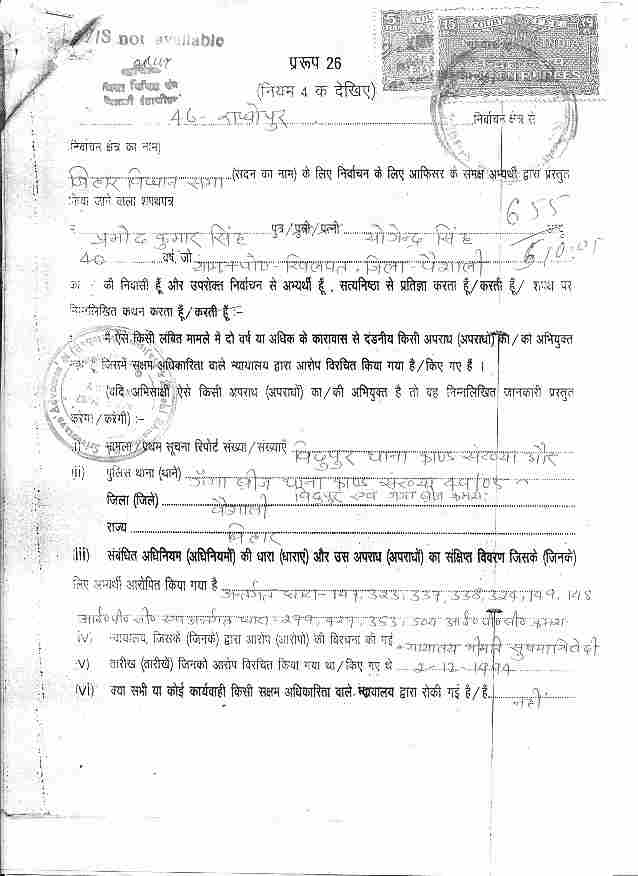 /IS not available
प्ररूप 26
(नियम 4 क देखिए)
46-राघोपुर निर्वाचन क्षेत्र से
निर्वाचन क्षेत्र का नाम)
बिहार विधान सभा (सदन का नाम) के लिए निर्वाचन के लिए आफिसर के समक्ष अभ्यर्थी द्वारा प्रस्तुत
किया जाने वाला शपथपत्र
655
प्रमोद कुमार सिंह पुत्र/पुत्री/पत्नी योगेन्द्र सिंह
40 वर्ष, जो जिला-वैशाली
का की निवासी हूँ और उपरोक्त निर्वाचन से अभ्यर्थी हूँ, सत्यनिष्ठा से प्रतिज्ञा करता हूँ/करती हूँ/ शपथ पर
निम्नलिखित कथन करता हूँ/करती हूँ :-
मैं ऐसे किसी लंबित मामले में दो वर्ष या अधिक के कारावास से दंडनीय किसी अपराध (अपराधों) का/की अभियुक्त
हूँ जिसमें सक्षम अधिकारिता वाले न्यायालय द्वारा आरोप विरचित किया गया है/किए गए हैं ।
(यदि अभिसाक्षी ऐसे किसी अपराध (अपराधों) का/की अभियुक्त है तो वह निम्नलिखित जानकारी प्रस्तुत
करेगा/करेगी) :-
i) मामला/प्रथम सूचना रिपोर्ट संख्या/संख्याएँ बिदुपुर थाना काण्ड संख्या और
(ii) पुलिस थाना (थाने) गंगा ब्रीज थाना काण्ड संख्या
बिदुपुर एवं गंगा ब्रीज क्रमशः
जिला (जिले) वैशाली
राज्य बिहार
(iii) संबंधित अधिनियम (अधिनियमों) की धारा (धाराएं) और उस अपराध (अपराधों) का संक्षिप्त विवरण जिसके (जिनके)
लिए अभ्यर्थी आरोपित किया गया है अन्तर्गत धारा-147, 323, 337, 338, 324, 149, 148
आई०पी०सी० एवं अन्तर्गत धारा-279, 427, 353, 504 आई०पी०सी० क्रमशः
iv) न्यायालय, जिसके (जिनके) द्वारा आरोप (आरोपों) की विरचना की गई न्यायालय श्रीमति सुषमा त्रिवेदी
v) तारीख (तारीखें) जिनको आरोप विरचित किया गया था/किए गए थे 2-12-1994
(vi) क्या सभी या कोई कार्यवाही किसी सक्षम अधिकारिता वाले न्यायालय द्वारा रोकी गई है/हैं नहीं